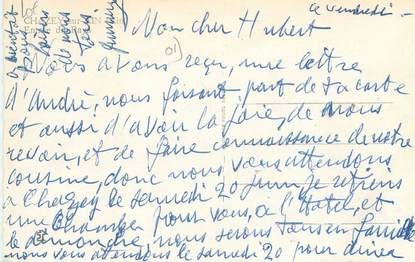 ce vendredi
Mon cher Hubert
Nous avons reçu, une lettre
d'André, nous faisant part de ta carte
et aussi d'avoir la joie, de nous
revoir, et de faire connaissance de notre
cousine, donc nous vous attendons
à Chazey le samedi 20 juin, je retiens
une chambre pour vous, à l'Hotel, et
le dimanche, nous serons tous en famille
nous vous attendons le samedi 20 pour diner
à bientôt
nous
tous